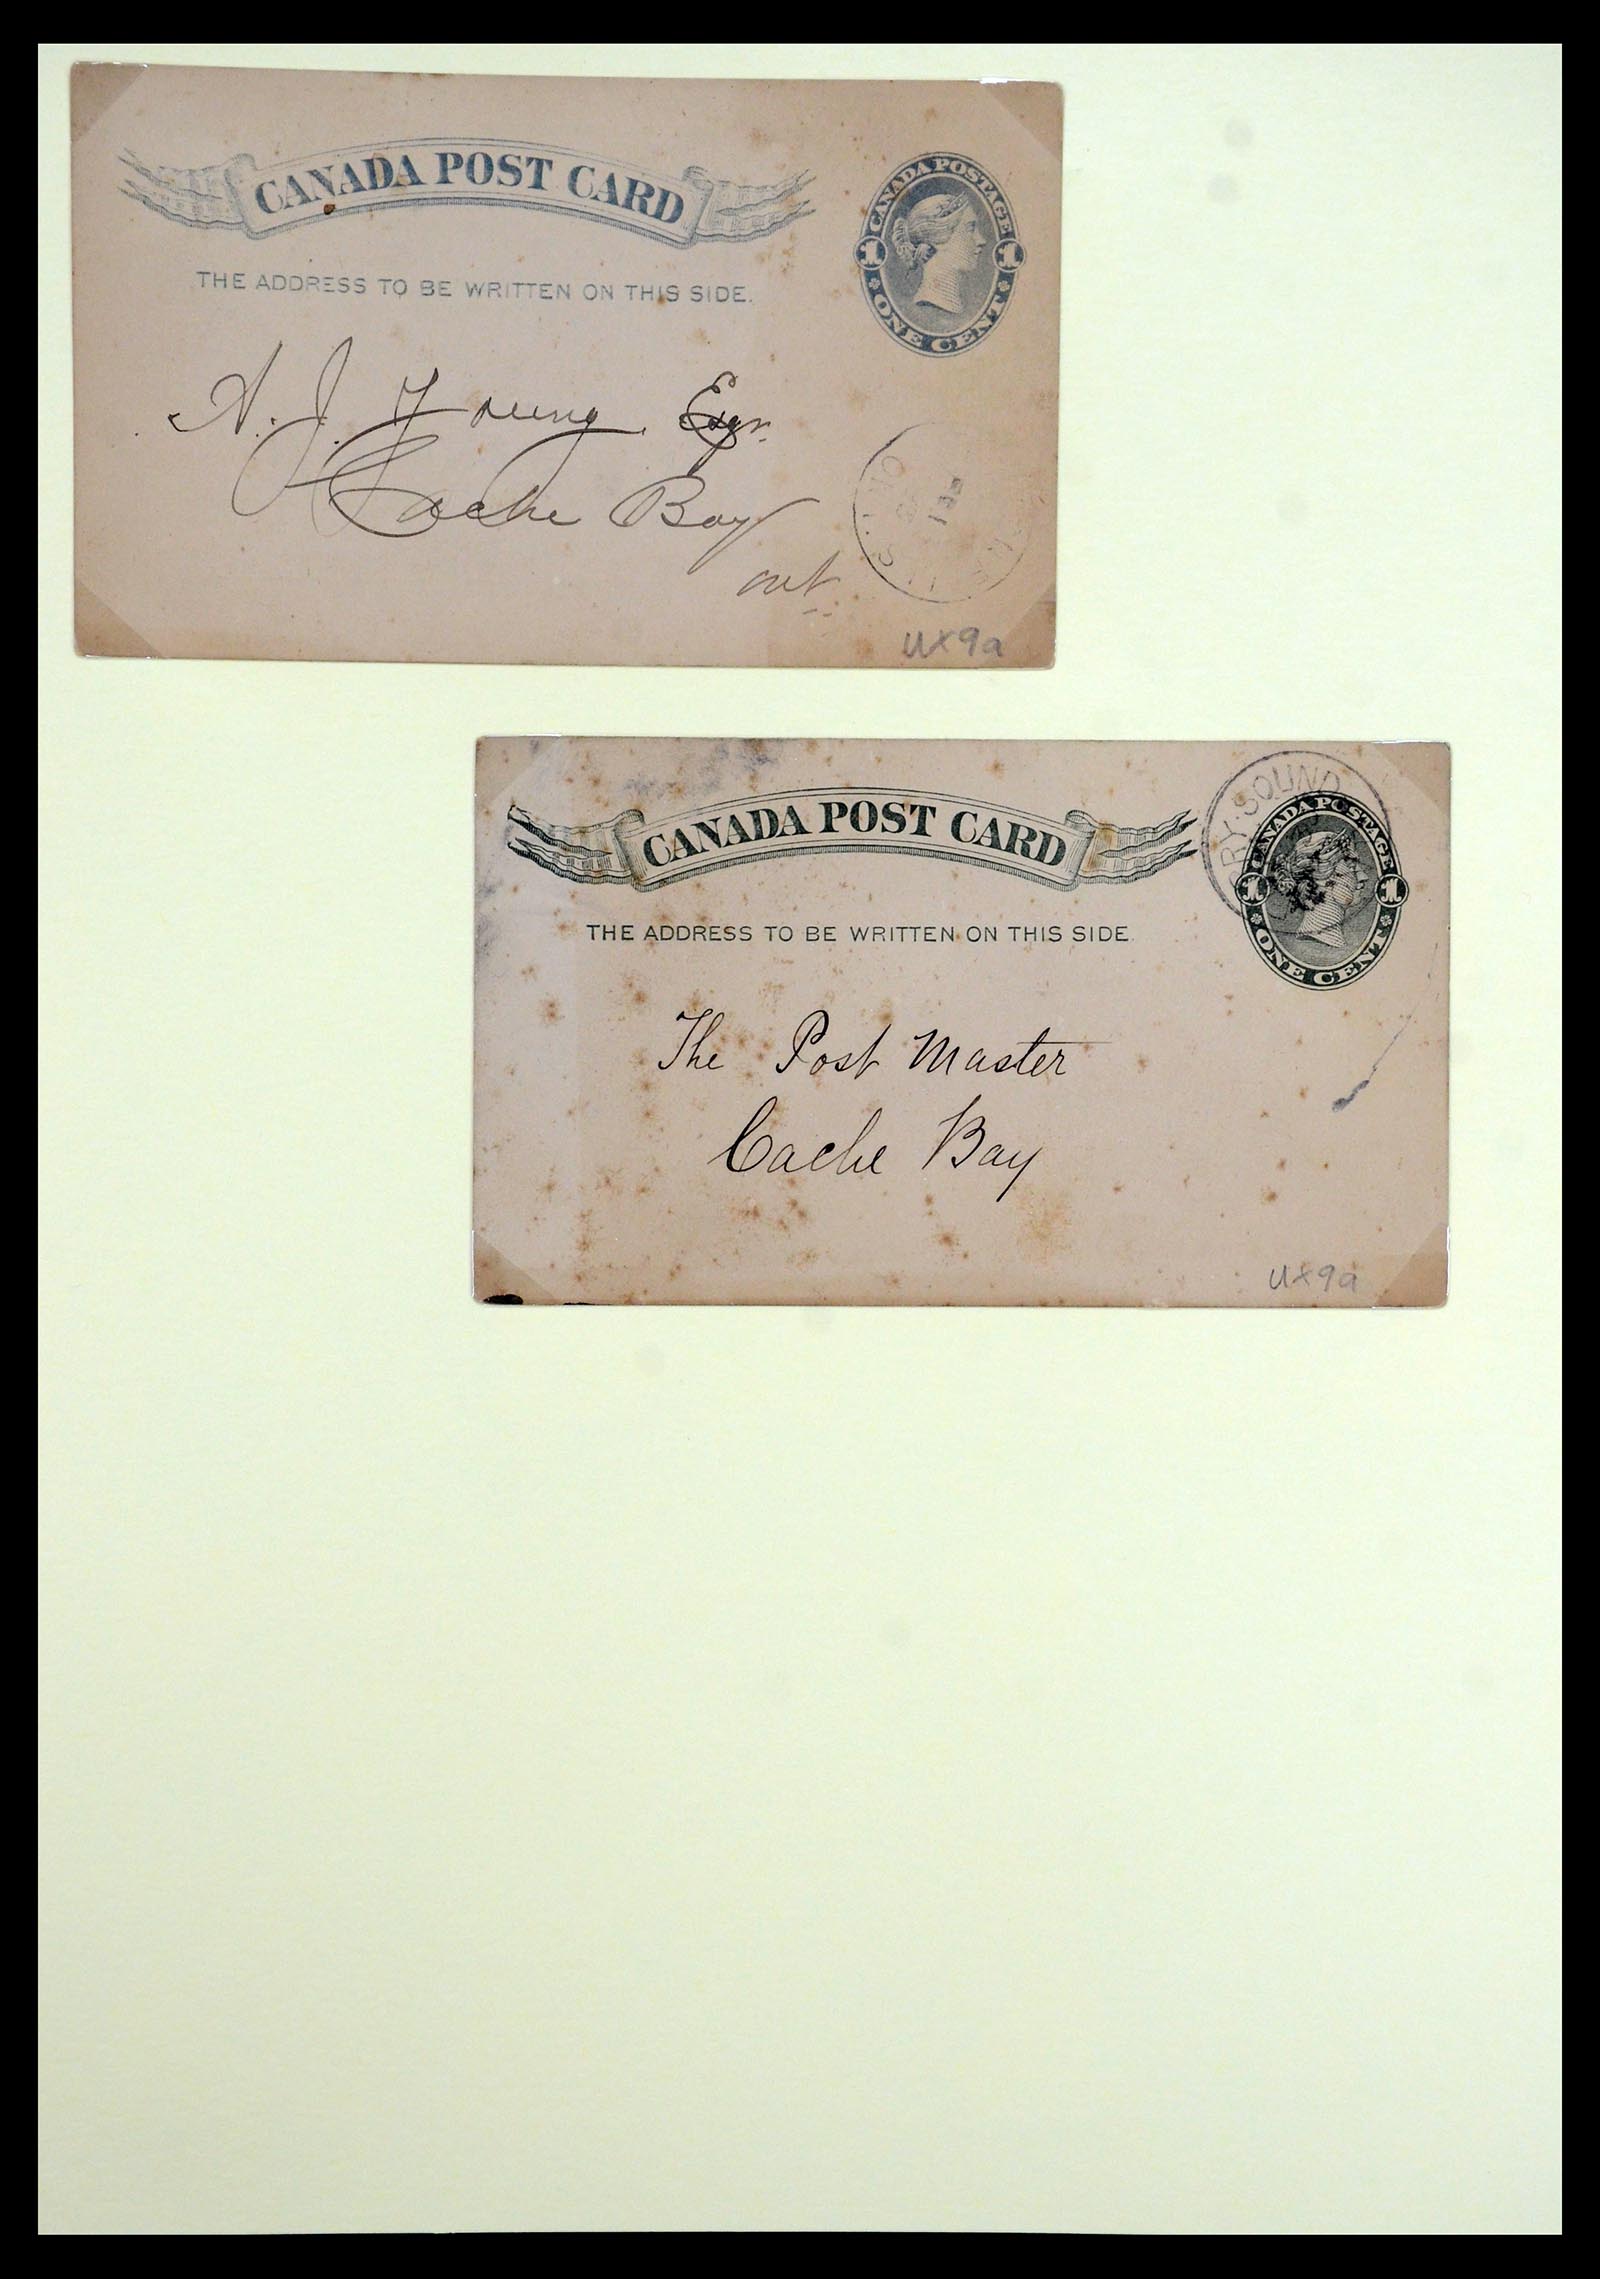 CANADA POST CARD
CANADA POSTAGE
1 1
ONE CENT
THE ADDRESS TO BE WRITTEN ON THIS SIDE.
A. J. Young Esqr.
Cache Bay
ONT
ont
UX9a
CANADA POST CARD
RY·SOUND
CANADA POSTAGE
1 1
ONE CENT
THE ADDRESS TO BE WRITTEN ON THIS SIDE.
The Post Master
Cache Bay
UX9a